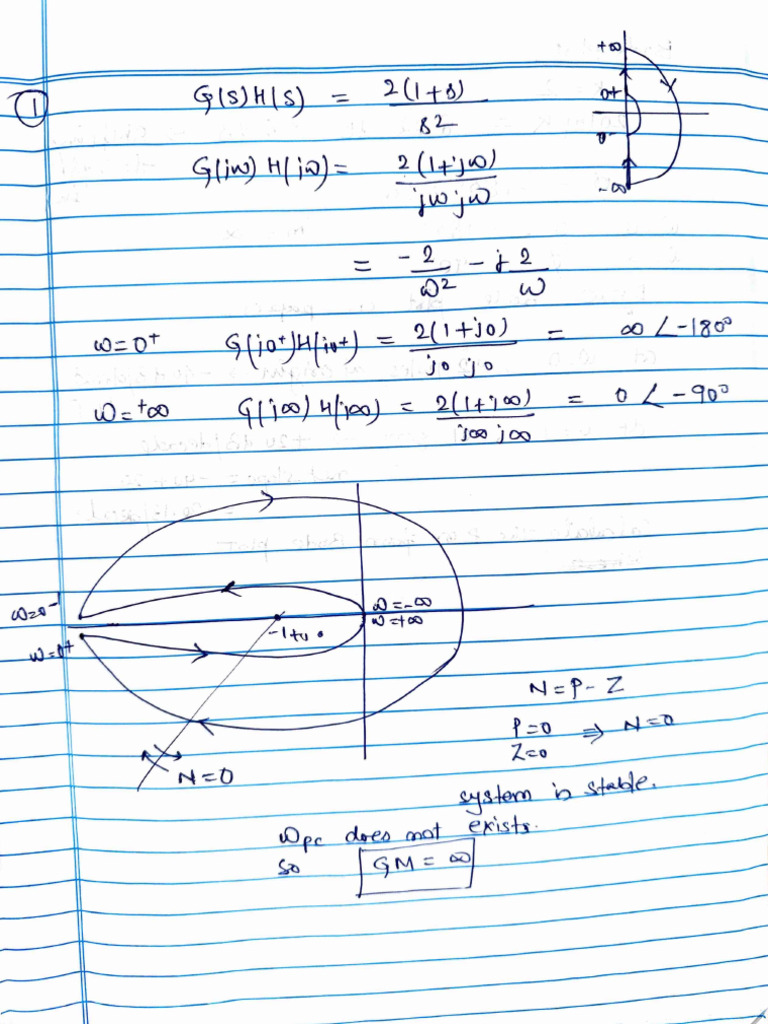 +∞
① G(s)H(s) = 2(1+s) / s²
0+
0-
G(jω) H(jω) = 2(1+jω) / jω jω
-∞
= -2/ω² - j 2/ω
ω=0⁺ G(j0⁺)H(j0⁺) = 2(1+j0) / j0 j0 = ∞ ∠-180°
ω=+∞ G(j∞) H(j∞) = 2(1+j∞) / j∞ j∞ = 0 ∠-90°
ω=0⁻
ω=-∞
ω=+∞
-1+j0
ω=0⁺
N=P-Z
P=0 ⇒ N=0
Z=0
N=0
system is stable.
ωpc does not exists.
so GM = ∞